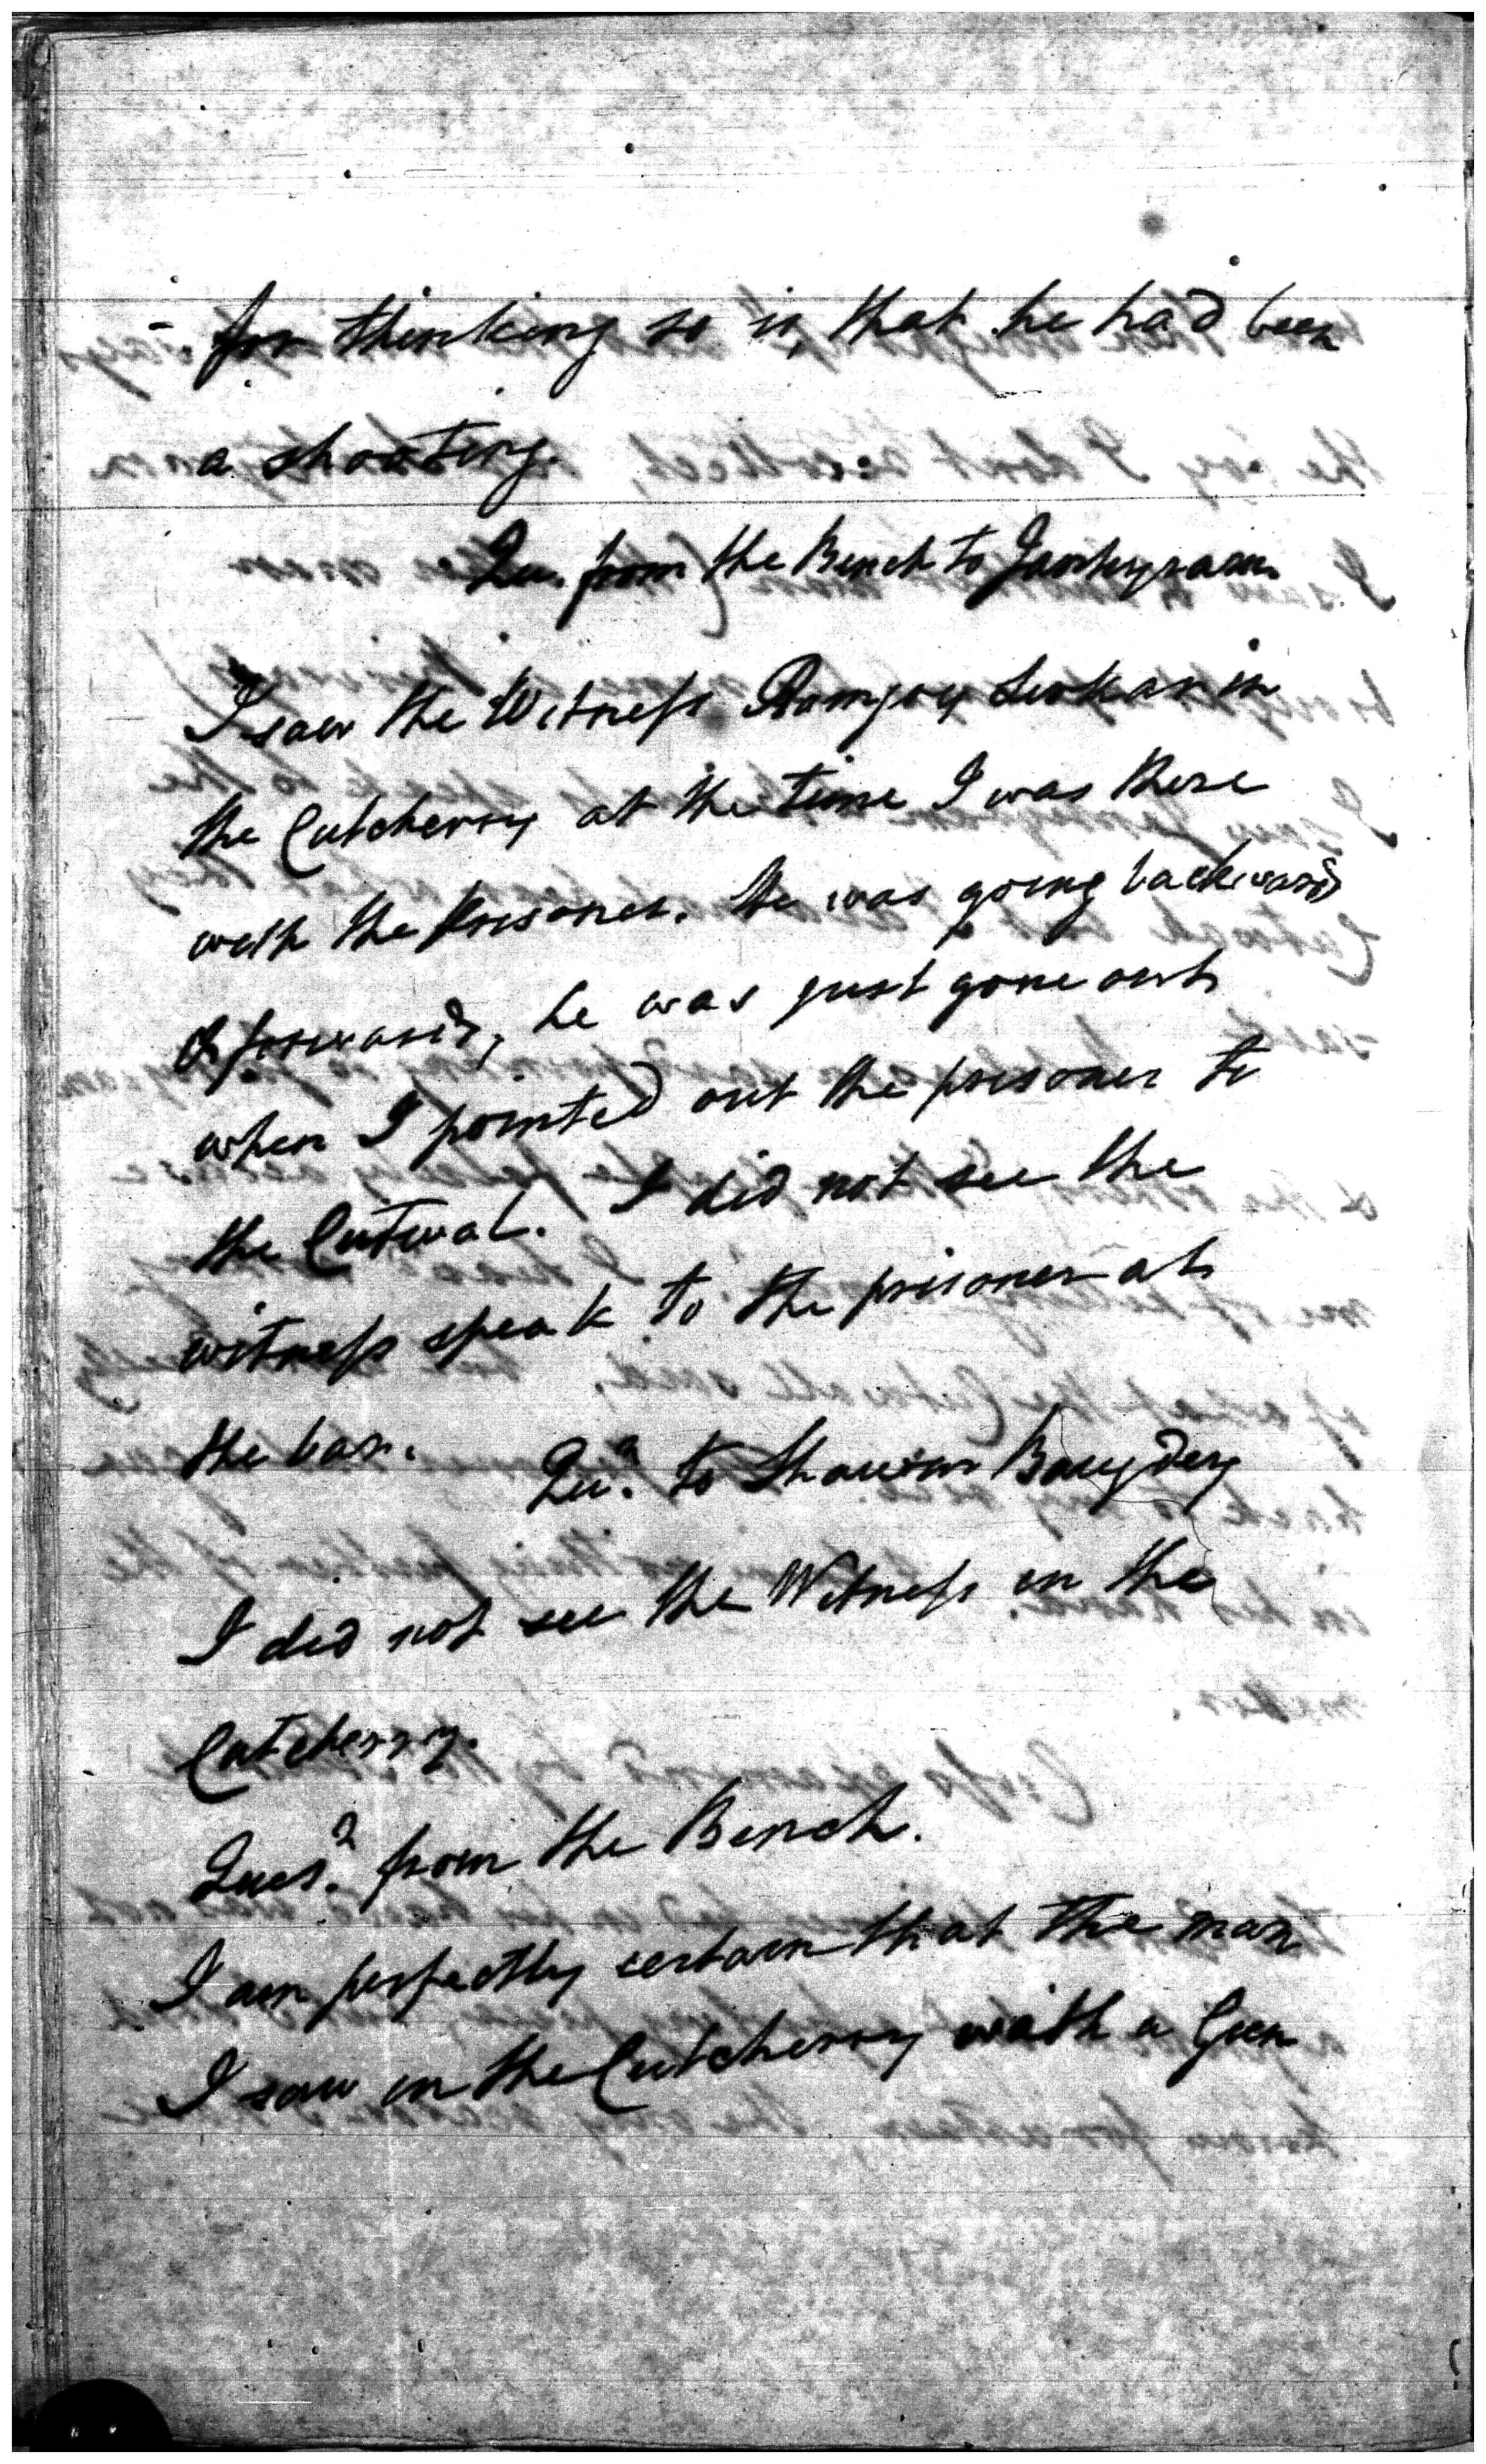 for thinking so is, that he had been
a shooting.
Qu. from the Bench to Jankyram.
I saw the Witness Ramjoy Sirkar in
the Cutcherry at the time I was there
with the Prisoner. He was going backwards
& forwards, he was just gone out
when I pointed out the prisoner to
the Cutwal. I did not see the
witness speak to the prisoner at
the bar.
Qun. to
I did not see the Witness in the
Cutcherry.
Quesn. from the Bench.
I am perfectly certain that the man
I saw in the Cutcherry with a Gun